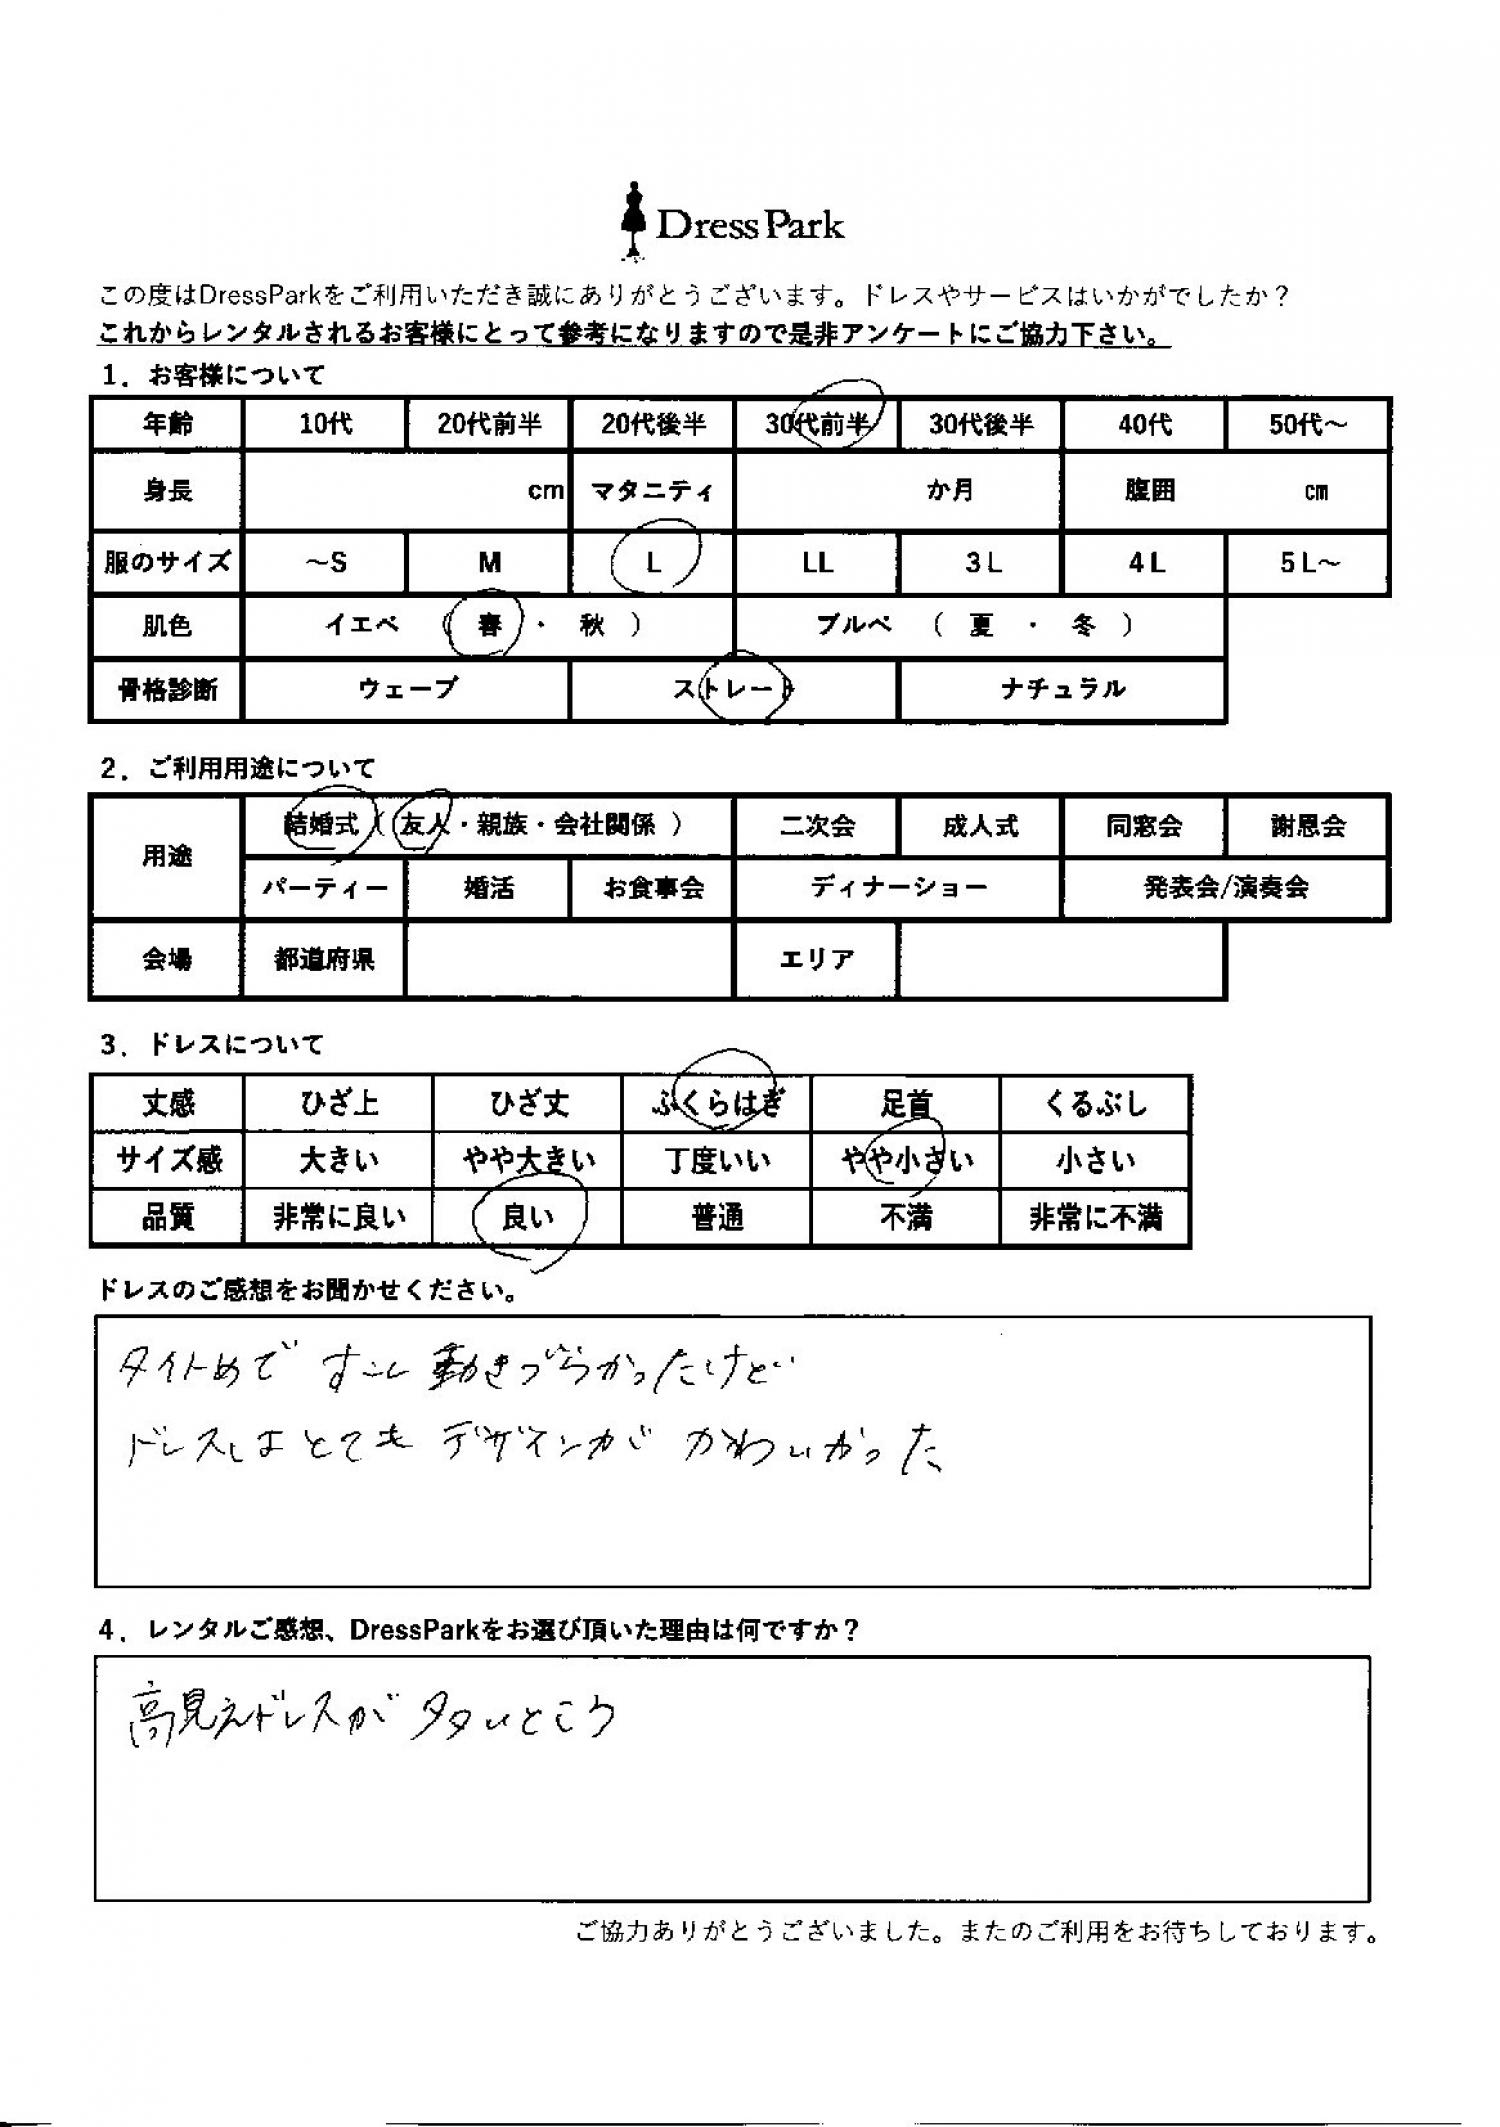 Dress Park
この度はDressParkをご利用いただき誠にありがとうございます。ドレスやサービスはいかがでしたか？
これからレンタルされるお客様にとって参考になりますので是非アンケートにご協力下さい。
1．お客様について
年齢 10代 20代前半 20代後半 30代前半 30代後半 40代 50代～
身長 cm マタニティ か月 腹囲 cm
服のサイズ ～S M L LL 3L 4L 5L～
肌色 イエベ （ 春 ・ 秋 ） ブルベ （ 夏 ・ 冬 ）
骨格診断 ウェーブ ストレート ナチュラル
2．ご利用用途について
用途 結婚式（ 友人・親族・会社関係 ） 二次会 成人式 同窓会 謝恩会
パーティー 婚活 お食事会 ディナーショー 発表会/演奏会
会場 都道府県 エリア
3．ドレスについて
丈感 ひざ上 ひざ丈 ふくらはぎ 足首 くるぶし
サイズ感 大きい やや大きい 丁度いい やや小さい 小さい
品質 非常に良い 良い 普通 不満 非常に不満
ドレスのご感想をお聞かせください。
タイトめで すこし 動きづらかったけど
ドレスはとても デザインが かわいかった
4．レンタルご感想、DressParkをお選び頂いた理由は何ですか？
高見えドレスが 多いところ
ご協力ありがとうございました。またのご利用をお待ちしております。